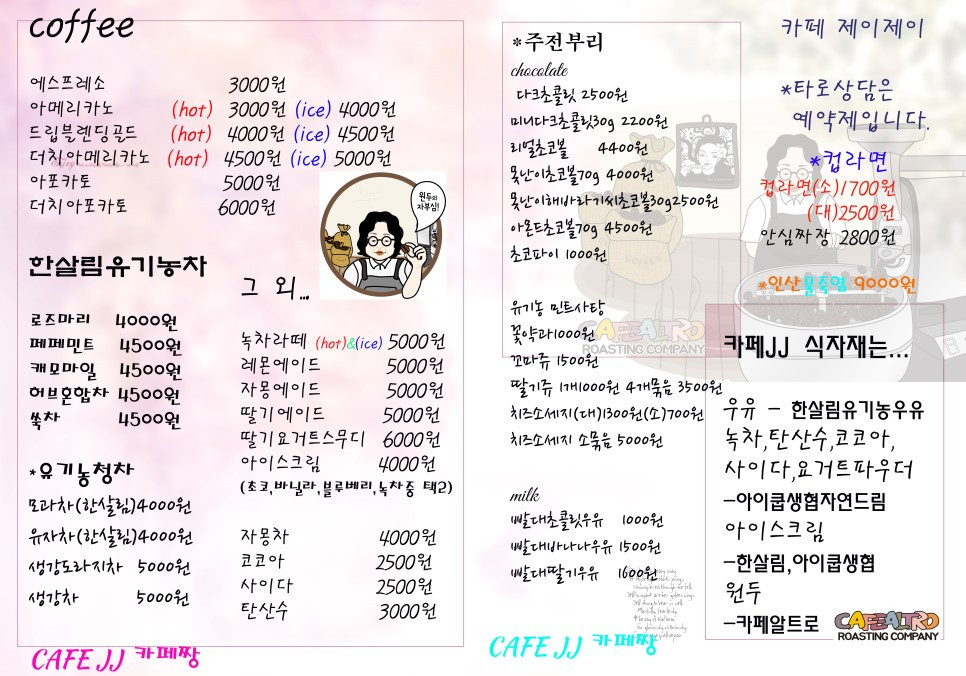 coffee
에스프레소 3000원
아메리카노 (hot) 3000원 (ice) 4000원
드립블렌딩골드 (hot) 4000원 (ice) 4500원
더치아메리카노 (hot) 4500원 (ice) 5000원
아포카토 5000원
더치아포카토 6000원
원두의
자부심!
한살림유기농차
로즈마리 4000원
페페민트 4500원
캐모마일 4500원
허브혼합차 4500원
쑥차 4500원
*유기농청차
모과차(한살림)4000원
유자차(한살림)4000원
생강도라지차 5000원
생강차 5000원
그 외...
녹차라떼 (hot)&(ice) 5000원
레몬에이드 5000원
자몽에이드 5000원
딸기에이드 5000원
딸기요거트스무디 6000원
아이스크림 4000원
(초코,바닐라,블루베리,녹차중 택2)
자몽차 4000원
코코아 2500원
사이다 2500원
탄산수 3000원
CAFE JJ 카페짱
*주전부리
chocolate
다크초콜릿 2500원
미니다크초콜릿30g 2200원
리얼초코볼 4400원
못난이초코볼70g 4000원
못난이해바라기씨초코볼30g2500원
아몬드초코볼70g 4500원
초코파이 1000원
유기농 민트사탕
꽃약과1000원
꼬마쥬 1500원
딸기쥬 1개1000원 4개묶음 3500원
치즈소세지(대)1300원(소)700원
치즈소세지 소묶음 5000원
milk
빨대초콜릿우유 1000원
빨대바나나우유 1500원
빨대딸기우유 1600원
CAFE JJ 카페짱
COFFEE
CAFEALTRO
ROASTING COMPANY
카페 제이제이
*타로상담은
예약제입니다.
*컵라면
컵라면(소)1700원
(대)2500원
안심짜장 2800원
*인산물죽염 9000원
카페JJ 식자재는...
우유 - 한살림유기농우유
녹차,탄산수,코코아,
사이다,요거트파우더
-아이쿱생협자연드림
아이스크림
-한살림,아이쿱생협
원두
-카페알트로
CAFEALTRO
ROASTING COMPANY